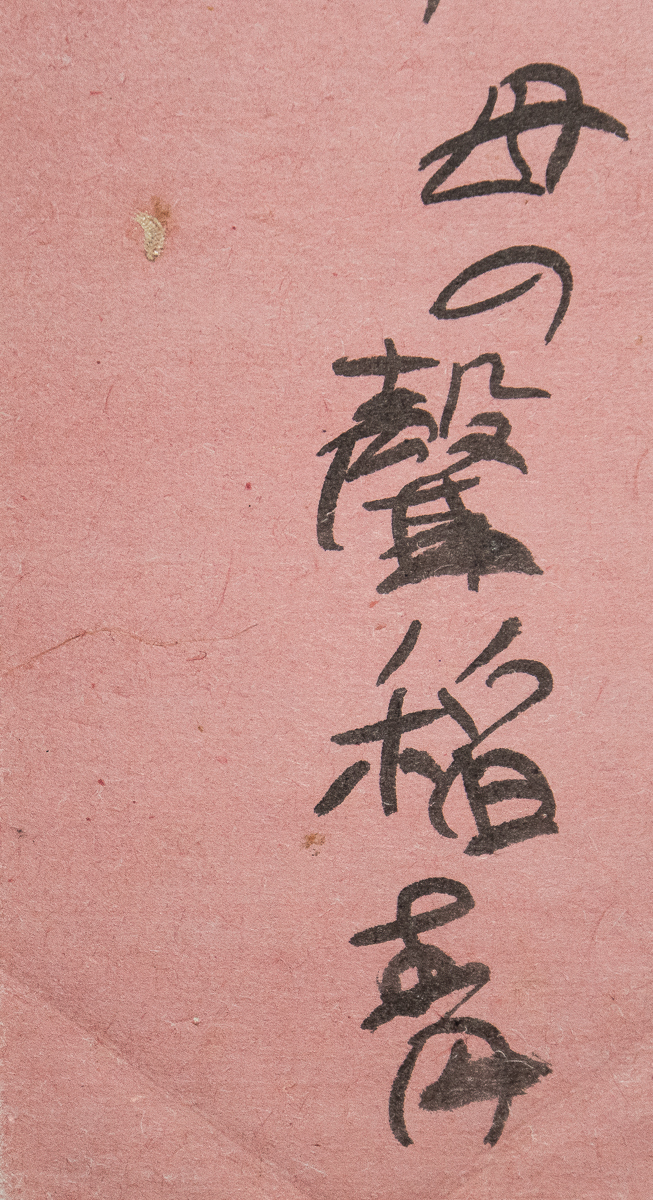 母の聲稲青